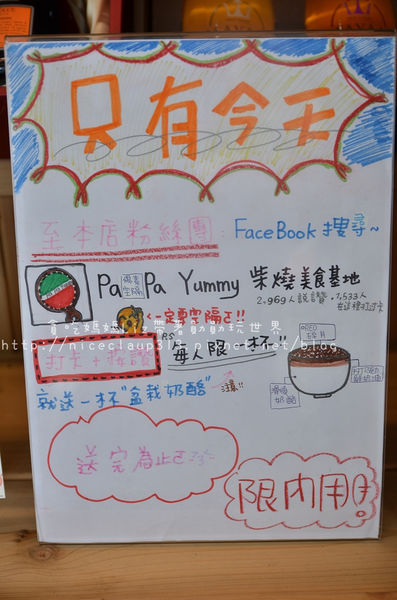 只有今天
至本店粉絲團：FaceBook 搜尋~
Pa Pa Yummy 柴燒美食基地
2,969人說讚·7,533人
在這裡打卡
一定要空隔ㄛ!!
貪吃媽媽
http://niceclaup313.pixnet.net/blog
打卡+按讚
每人限一杯!!
就送一杯"盆栽奶酪"
注意!!
OREO
碎片
奶酪
送完為止ㄛ
限內用!